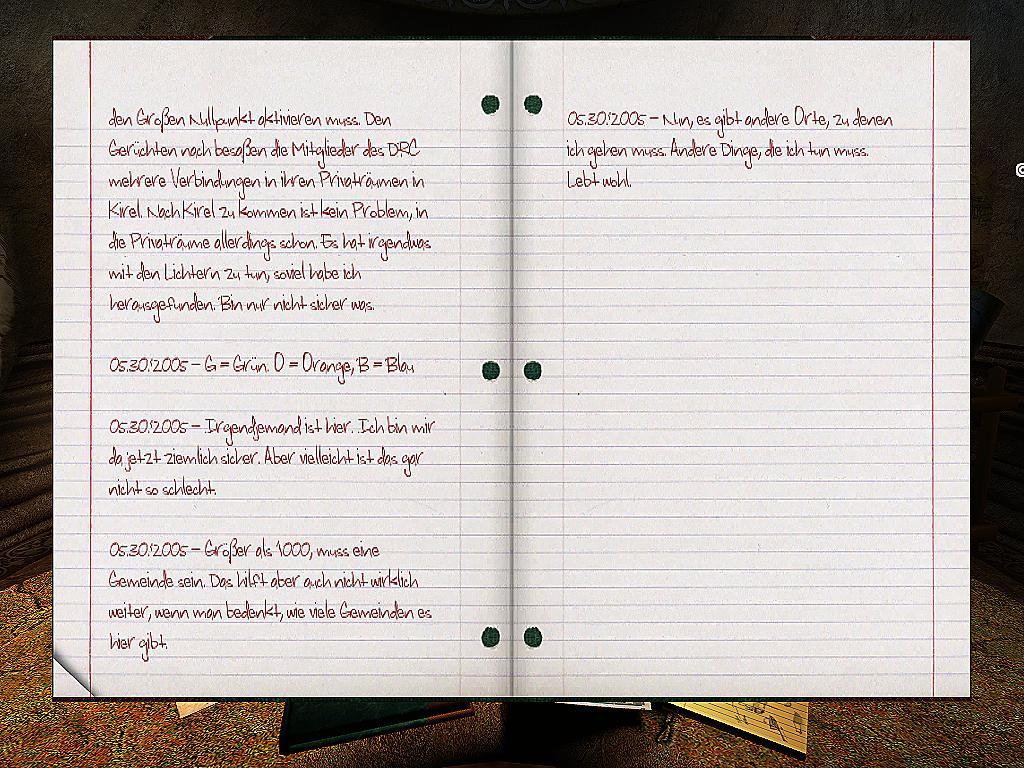 den Großen Nullpunkt aktivieren muss. Den
Gerüchten nach besaßen die Mitglieder des DRC
mehrere Verbindungen in ihren Privaträumen in
Kirel. Nach Kirel zu kommen ist kein Problem, in
die Privaträume allerdings schon. Es hat irgendwas
mit den Lichtern zu tun, soviel habe ich
herausgefunden. Bin nur nicht sicher was.
05.30.2005 – G = Grün. O = Orange, B = Blau
05.30.2005 – Irgendjemand ist hier. Ich bin mir
da jetzt ziemlich sicher. Aber vielleicht ist das gar
nicht so schlecht.
05.30.2005 – Größer als 1000, muss eine
Gemeinde sein. Das hilft aber auch nicht wirklich
weiter, wenn man bedenkt, wie viele Gemeinden es
hier gibt.
05.30.2005 – Nun, es gibt andere Orte, zu denen
ich gehen muss. Andere Dinge, die ich tun muss.
Lebt wohl.